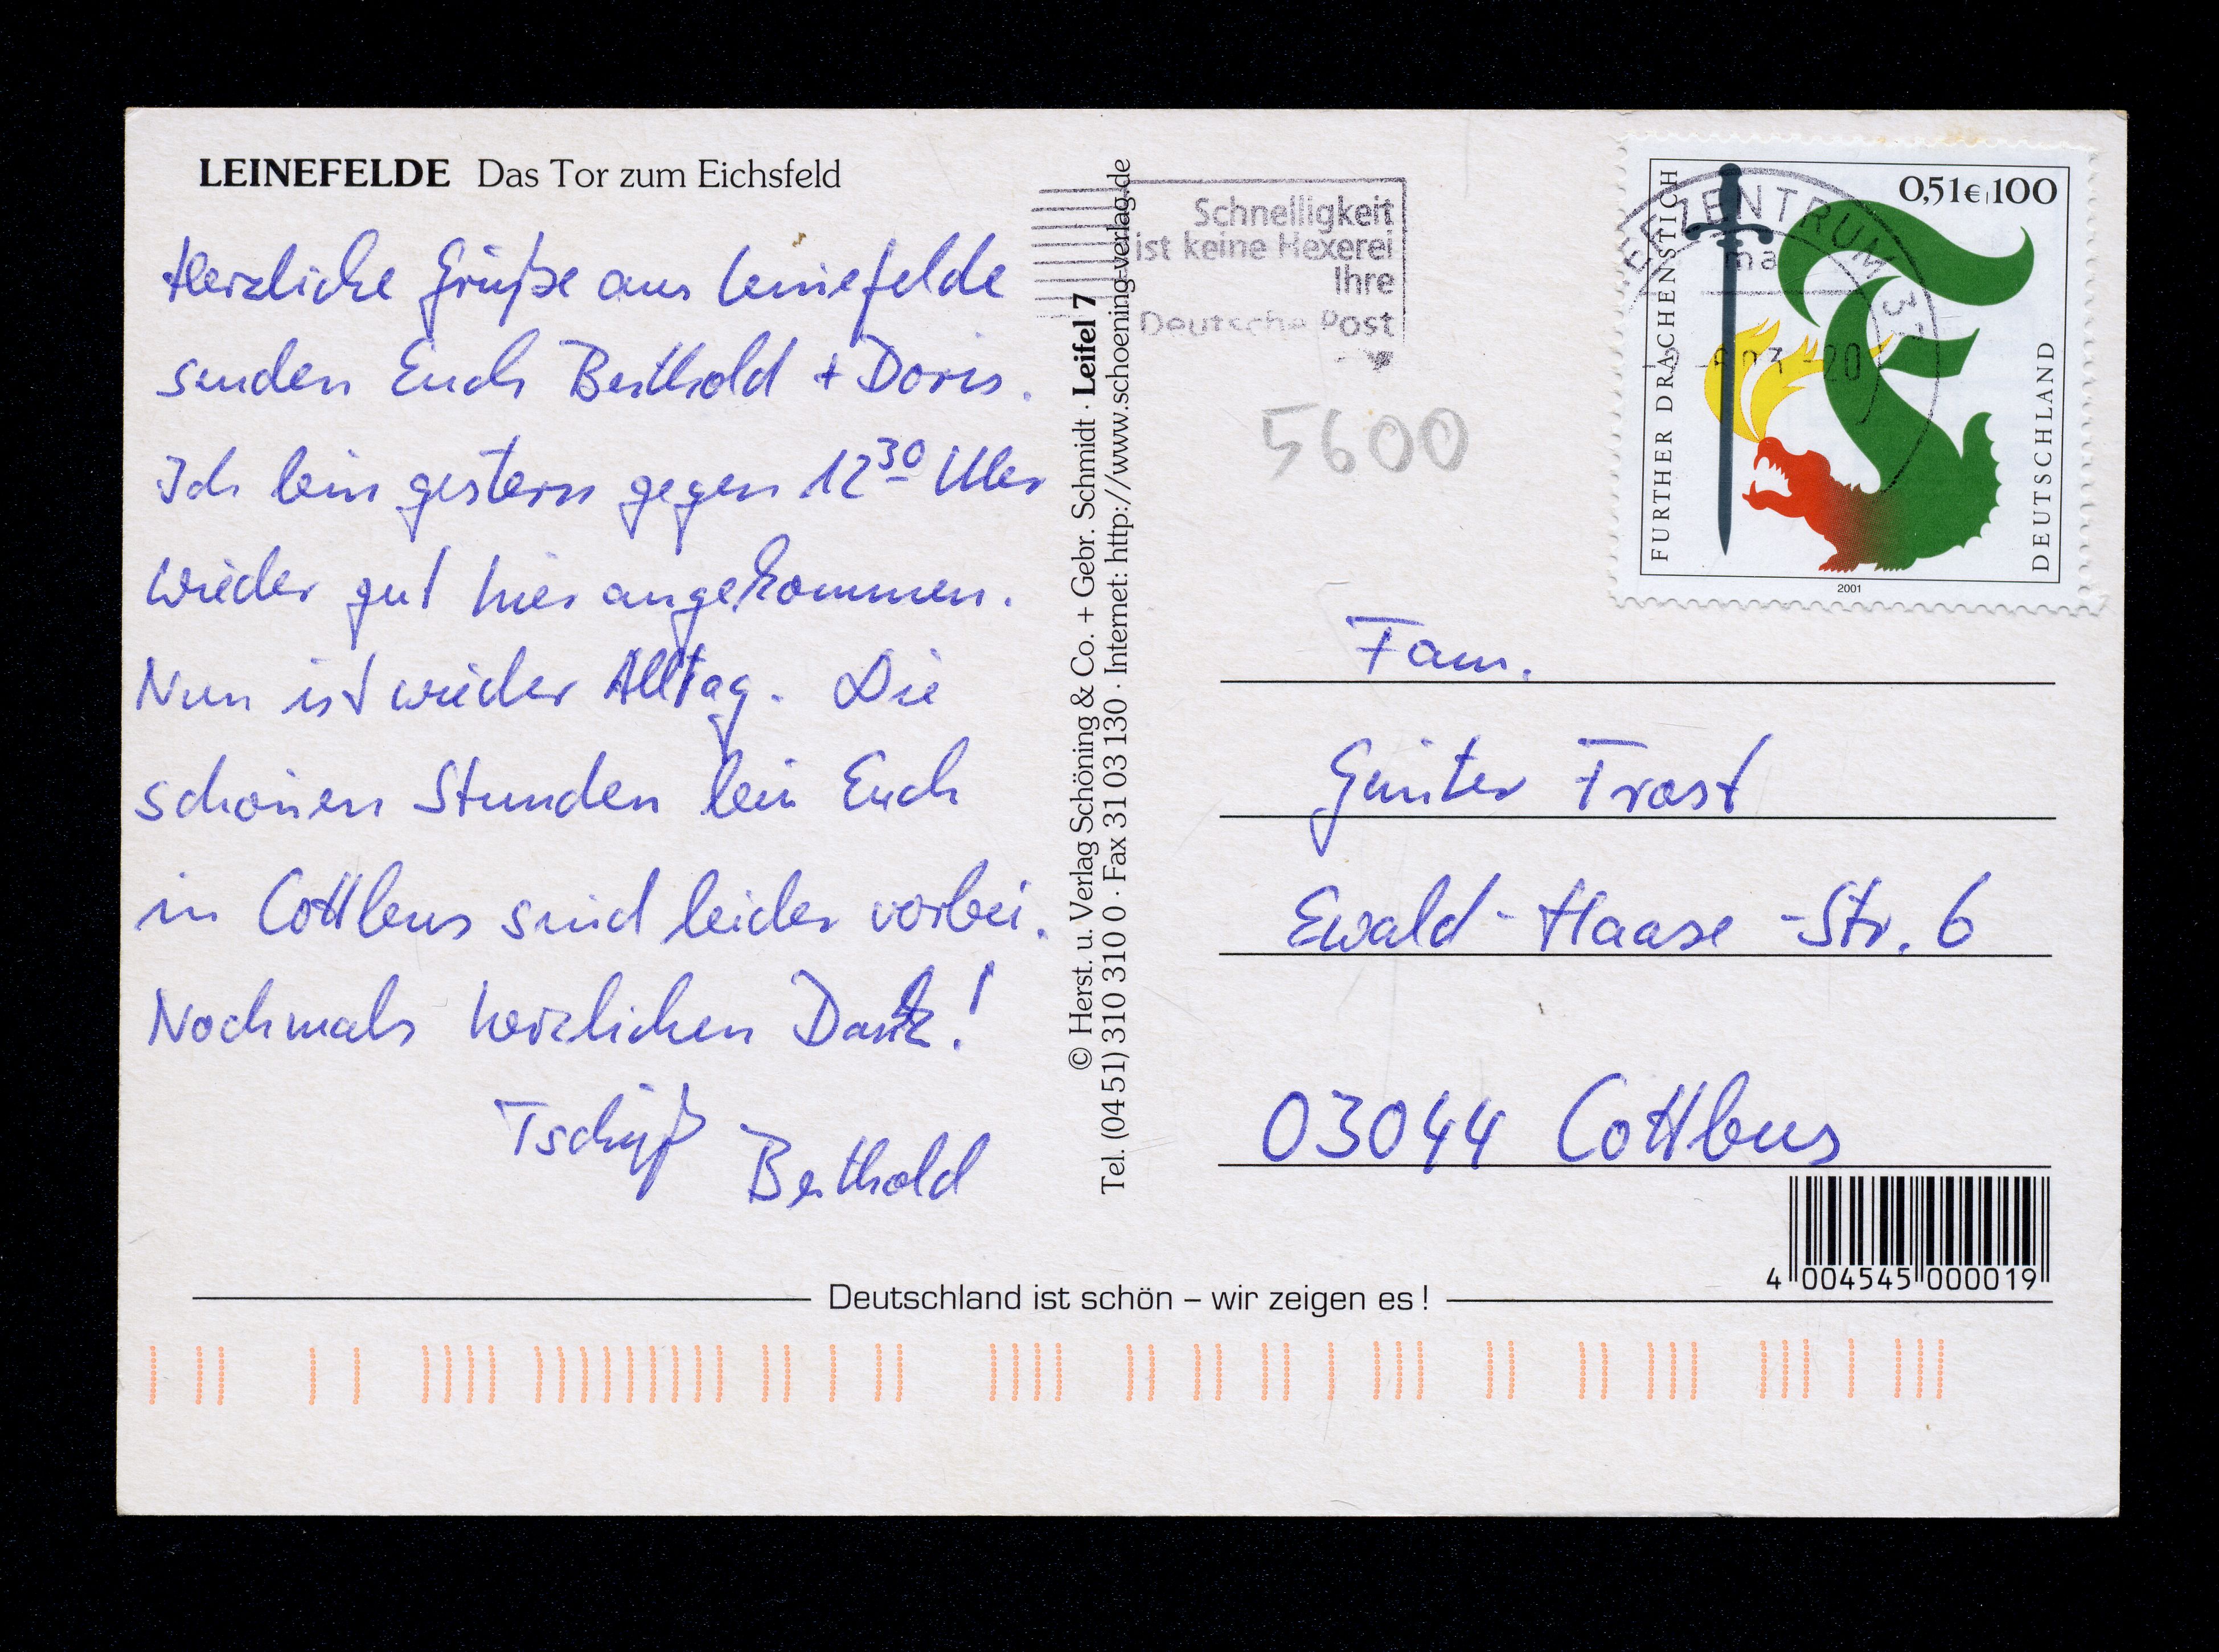 LEINEFELDE Das Tor zum Eichsfeld
Herzliche Grüße aus Leinefelde
senden Euch Berthold + Doris.
Ich bin gestern gegen 12³⁰ Uhr
wieder gut hier angekommen.
Nun ist wieder Alltag. Die
schönen Stunden bei Euch
in Cottbus sind leider vorbei.
Nochmals herzlichen Dank!
Tschüß
Berthold
© Herst. u. Verlag Schöning & Co. + Gebr. Schmidt · Leifel 7
Tel. (04 51) 310 310 0 · Fax 31 03 130 · Internet: http://www.schoening-verlag.de
Schnelligkeit
ist keine Hexerei
Ihre
Deutsche Post
5600
BRIEFZENTRUM 37
ma
FURTHER DRACHENSTICH
0,51€ 100
DEUTSCHLAND
2001
Fam.
Günter Frost
Ewald-Haase-Str. 6
03044 Cottbus
4 004545 000019
Deutschland ist schön – wir zeigen es!